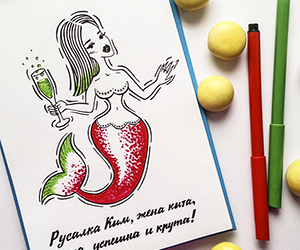 Русалка Ким, жена кита,
успешна и крута!